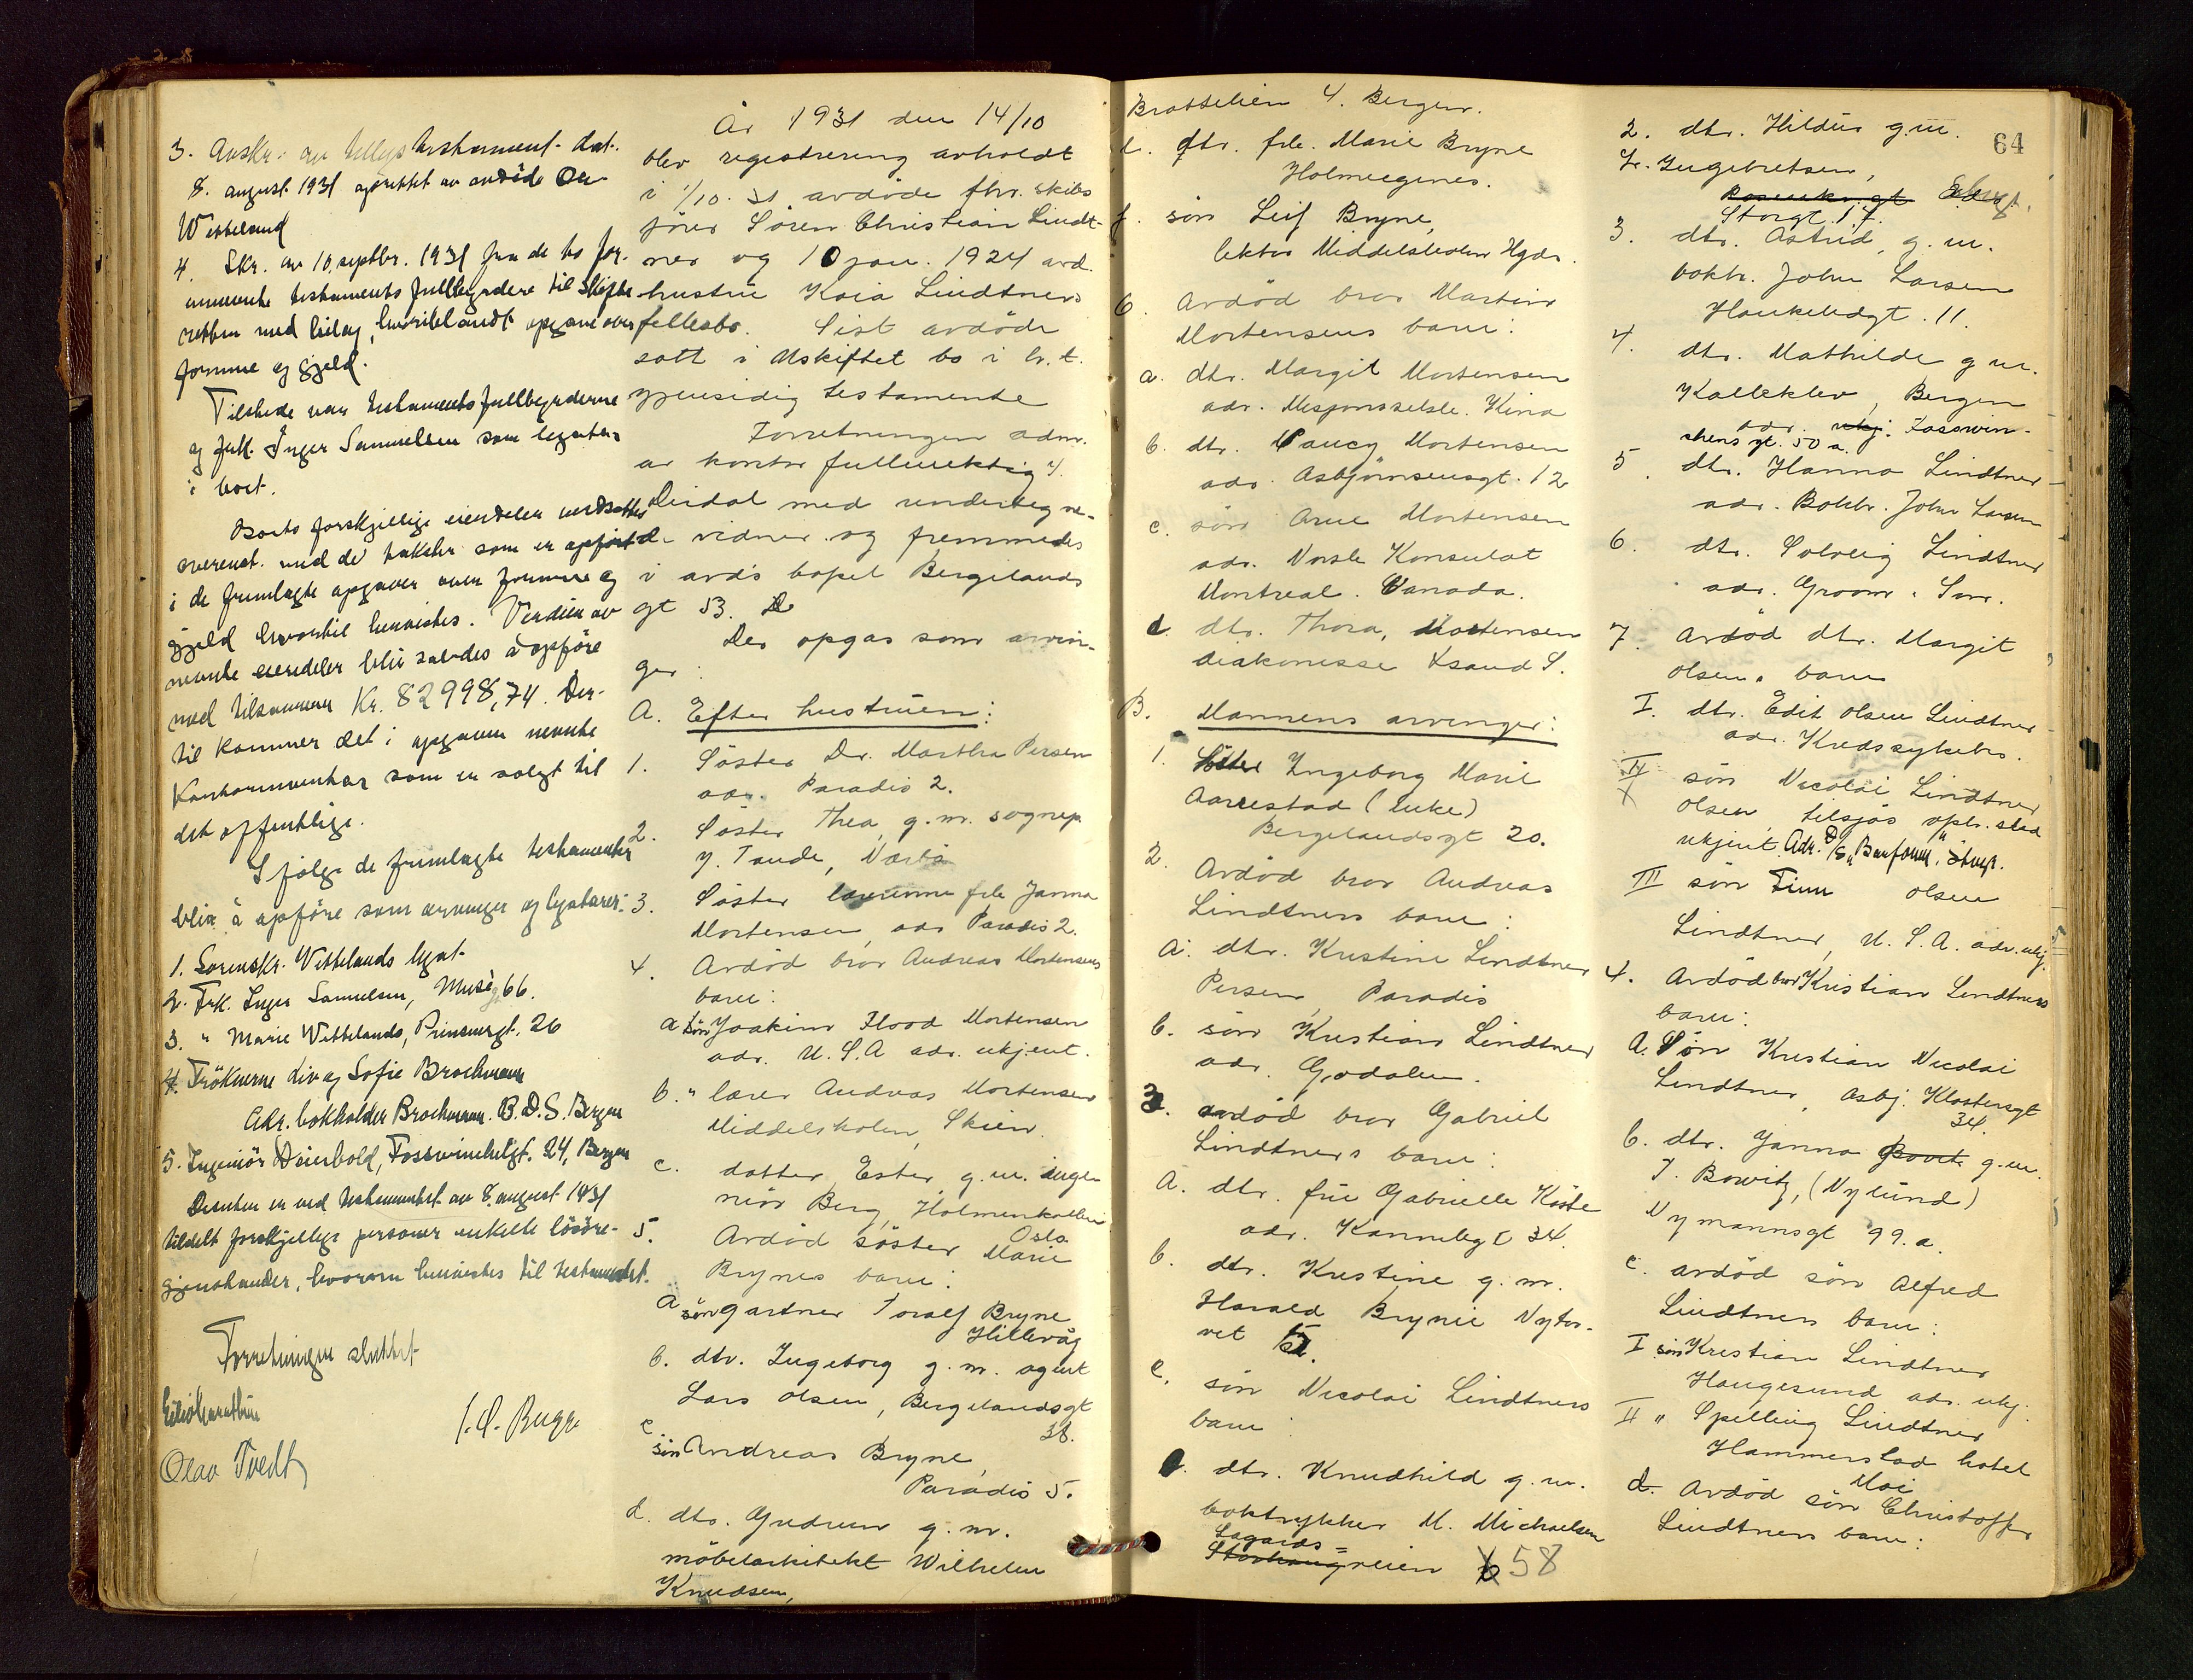 3. Avskr. av tillegs testament dat.
8. august 1931 oprettet av avdøde
Wetteland
4. Skr. av 10 septbr. 1931 fra de to for-
nevnte testamentsfullbyrdere til Skifte
retten med bilag, hvoriblandt opgave over
formue og gjeld.
Tilstede var testamentsfullbyrderne
og frk. Inger Samuelsen som legatar
i boet.
Boets forskjellige eiendeler verdsattes
overenst. med de takster som er opført
i de fremlagte opgaver over formue og
gjeld hvortil henvistes. Verdien av
nevnte eiendeler blir således å opføre
med tilsammen Kr. 82998,74. Der-
til kommer det i opgaven nevnte
Kontorinventar som er solgt til
det offentlige.
I følge de fremlagte testamenter
blir å opføre som arvinger og legatarer:
1. Sorenskr. Wettelands legat
2. Frk. Inger Samuelsen, Museg. 66.
3. " Marie Wettelands, Prinsensgt. 26
4. Frøknerne Liv og Sofie Brochmann
Adr. bokholder Brochmann. B.D.S. Bergen
5. Ingeniør Deinbold, Fosswinckelgt. 24, Bergen
Desuten er ved testamentet av 8. august 1931
tildelt forskjellige personer enkelte løsøre-
gjenstander, hvorom henvistes til testamentet.
Forretningen sluttet
Olav Tvedt
Bugge
År 1931 den 14/10
blev registrering avholdt
i 1/10. 31 avdøde fhv. skibs
fører Søren Christian Lindt-
ner og 10 jan. 1924 avd.
hustru Kaia Lindtners
fellesbo. Sist avdøde
satt i uskiftet bo i h. t.
gjensidig testamente
Forretningen adm.
av kontorfullmektig
Lerdal med undertegne-
de vidner og fremmedes
i avd's bopel Bergelands
gt 53.
Der opgas som arvin-
ger:
A. Efter hustruen:
1. Søster Dr. Martha Persen
adr. Paradis 2.
2. Søster Thea, g. m. sognep.
J. Tande, Nærbø
3. Søster lærerinne frk Janna
Mortensen, adr Paradis 2.
4. Avdød bror Andreas Mortensens
barn:
a søn Joakim Flood Mortensen
adr. U.S.A adr. ukjent.
b. " lærer Andreas Mortensen
Middelskolen, Skien.
c. datter, Ester, g. m. inge-
niør Berg, Holmenkollen
Oslo
5. Avdød søster Marie
Brynes barn:
a søn gartner Toralf Bryne
Hillevåg
b. dtr. Ingeborg g. m. agent
Lars Olsen, Bergelandsgt
38.
c. søn Andreas Bryne,
Paradis 5.
d. dtr. Gudrun g. m.
møbelarkitekt Wilhelm
Knudsen,
Brattelien 4. Bergen.
e. dtr. frk. Marie Bryne
Holmeegenes.
f. søn Leif Bryne,
lektor Middelskolen Hgds.
6. Avdød bror Martin
Mortensens barn:
a. dtr. Margit Mortensen
adr. Misjonsselsk. Kina
b. dtr. Mortensen
adr. Asbjørnsensgt. 12
c. søn Arne Mortensen
adr. Norsk Konsulat
Montreal. Canada.
d. dtr. Thora, Mortensen
diakonisse Xsand S.
B. Mannens arvinger:
1. Søster Ingeborg Marie
Aarrestad (enke)
Bergelandsgt 20.
2. Avdød bror Andreas
Lindtners barn:
a. dtr. Kristine Lindtner
Persen, Paradis
b. søn Kristian Lindtner
adr. Godalen.
3. avdød bror Gabriel
Lindtners barn:
a. dtr. fru Gabrielle Køste
adr. Kannikgt 34.
b. dtr. Kristine g. m.
Harald Brynie Nytor-
vet 5.
c. søn Nicolai Lindtners
barn:
1. dtr. Knudhild g. m.
boktrykker M. Michaelsen
Lagårds-
Storhaugveien 58
64
2. dtr. Hildur g. m.
Fr. Ingebretsen,
Storgt. 17.
3. dtr. Astrid, g. m.
boktr. John Larsen
Haukelidgt. 11.
4. dtr. Mathilde g m.
Kalleklev, Bergen
adr. ukj. Fosswin-
ckens gt. 50 a.
5. dtr. Hanna Lindtner
adr. Boktr. John Larsen
6. dtr. Solveig Lindtner
adr. Groom. Son.
7. Avdød dtr. Margit
Olsens barn
I. dtr. Edit Olsen Lindtner
adr. Kredssykehs.
II søn Nicolai Lindtner
Olsen, tilsjøs opholdssted
ukjent. Adr. D/S "Banfonn", Stvgr.
III søn Finn Olsen
Lindtner, U.S.A. adr. ukj.
4. Avdød bror Kristian Lindtners
barn:
a. Søn Kristian Nicolai
Lindtner, Asbj. Klostersgt
34.
b. dtr. Janna g. m.
T. Bowitz, (Nylund)
Nymannsgt 99. a.
c. avdød søn Alfred
Lindtners barn:
I søn Kristian Lindtner
Haugesund adr. ukj.
II " Spelling Lindtner
Hammerstad hotel
Moi
d. Avdød søn Christoffer
Lindtners barn: